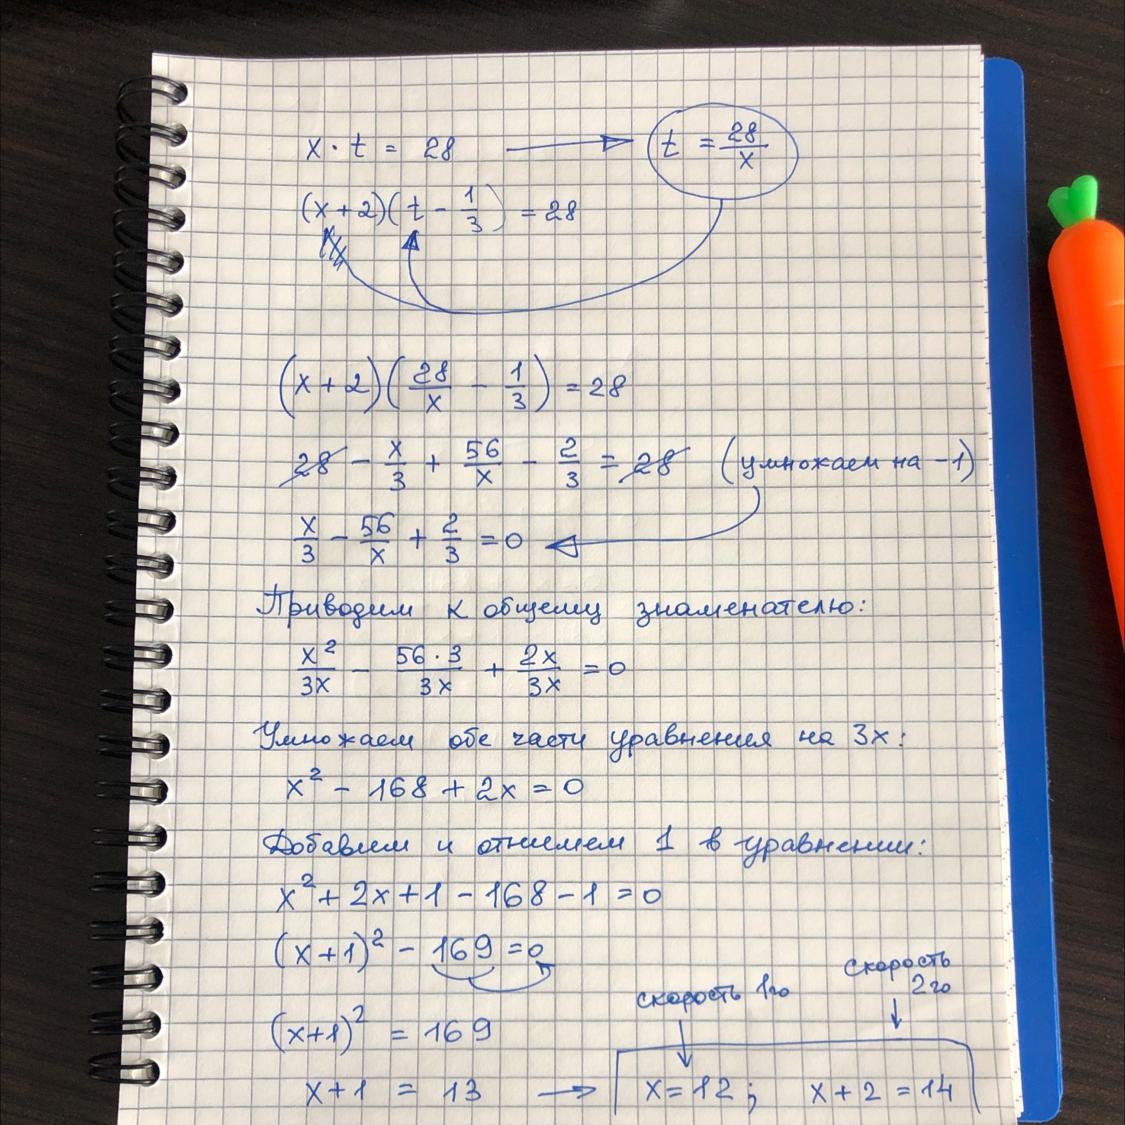 x · t = 28 → t = 28/x
(x + 2)(t - 1/3) = 28
(x + 2)(28/x - 1/3) = 28
28 - x/3 + 56/x - 2/3 = 28 (умножаем на -1)
x/3 - 56/x + 2/3 = 0
Приводим к общему знаменателю:
x²/3x - 56·3/3x + 2x/3x = 0
Умножаем обе части уравнения на 3x:
x² - 168 + 2x = 0
Добавим и отнимем 1 в уравнении:
x² + 2x + 1 - 168 - 1 = 0
(x + 1)² - 169 = 0
скорость 1го
скорость 2го
(x+1)² = 169
x + 1 = 13 → x = 12; x + 2 = 14